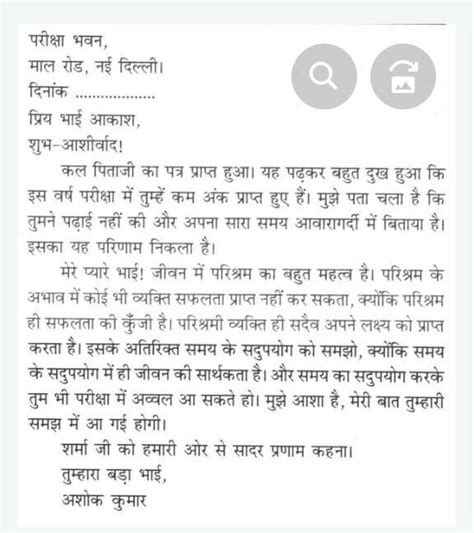 परीक्षा भवन,
माल रोड, नई दिल्ली।
दिनांक ...................
प्रिय भाई आकाश,
शुभ-आशीर्वाद!
कल पिताजी का पत्र प्राप्त हुआ। यह पढ़कर बहुत दुख हुआ कि
इस वर्ष परीक्षा में तुम्हें कम अंक प्राप्त हुए हैं। मुझे पता चला है कि
तुमने पढ़ाई नहीं की और अपना सारा समय आवारागर्दी में बिताया है।
इसका यह परिणाम निकला है।
मेरे प्यारे भाई! जीवन में परिश्रम का बहुत महत्व है। परिश्रम के
अभाव में कोई भी व्यक्ति सफलता प्राप्त नहीं कर सकता, क्योंकि परिश्रम
ही सफलता की कुँजी है। परिश्रमी व्यक्ति ही सदैव अपने लक्ष्य को प्राप्त
करता है। इसके अतिरिक्त समय के सदुपयोग को समझो, क्योंकि समय
के सदुपयोग में ही जीवन की सार्थकता है। और समय का सदुपयोग करके
तुम भी परीक्षा में अव्वल आ सकते हो। मुझे आशा है, मेरी बात तुम्हारी
समझ में आ गई होगी।
शर्मा जी को हमारी ओर से सादर प्रणाम कहना।
तुम्हारा बड़ा भाई,
अशोक कुमार